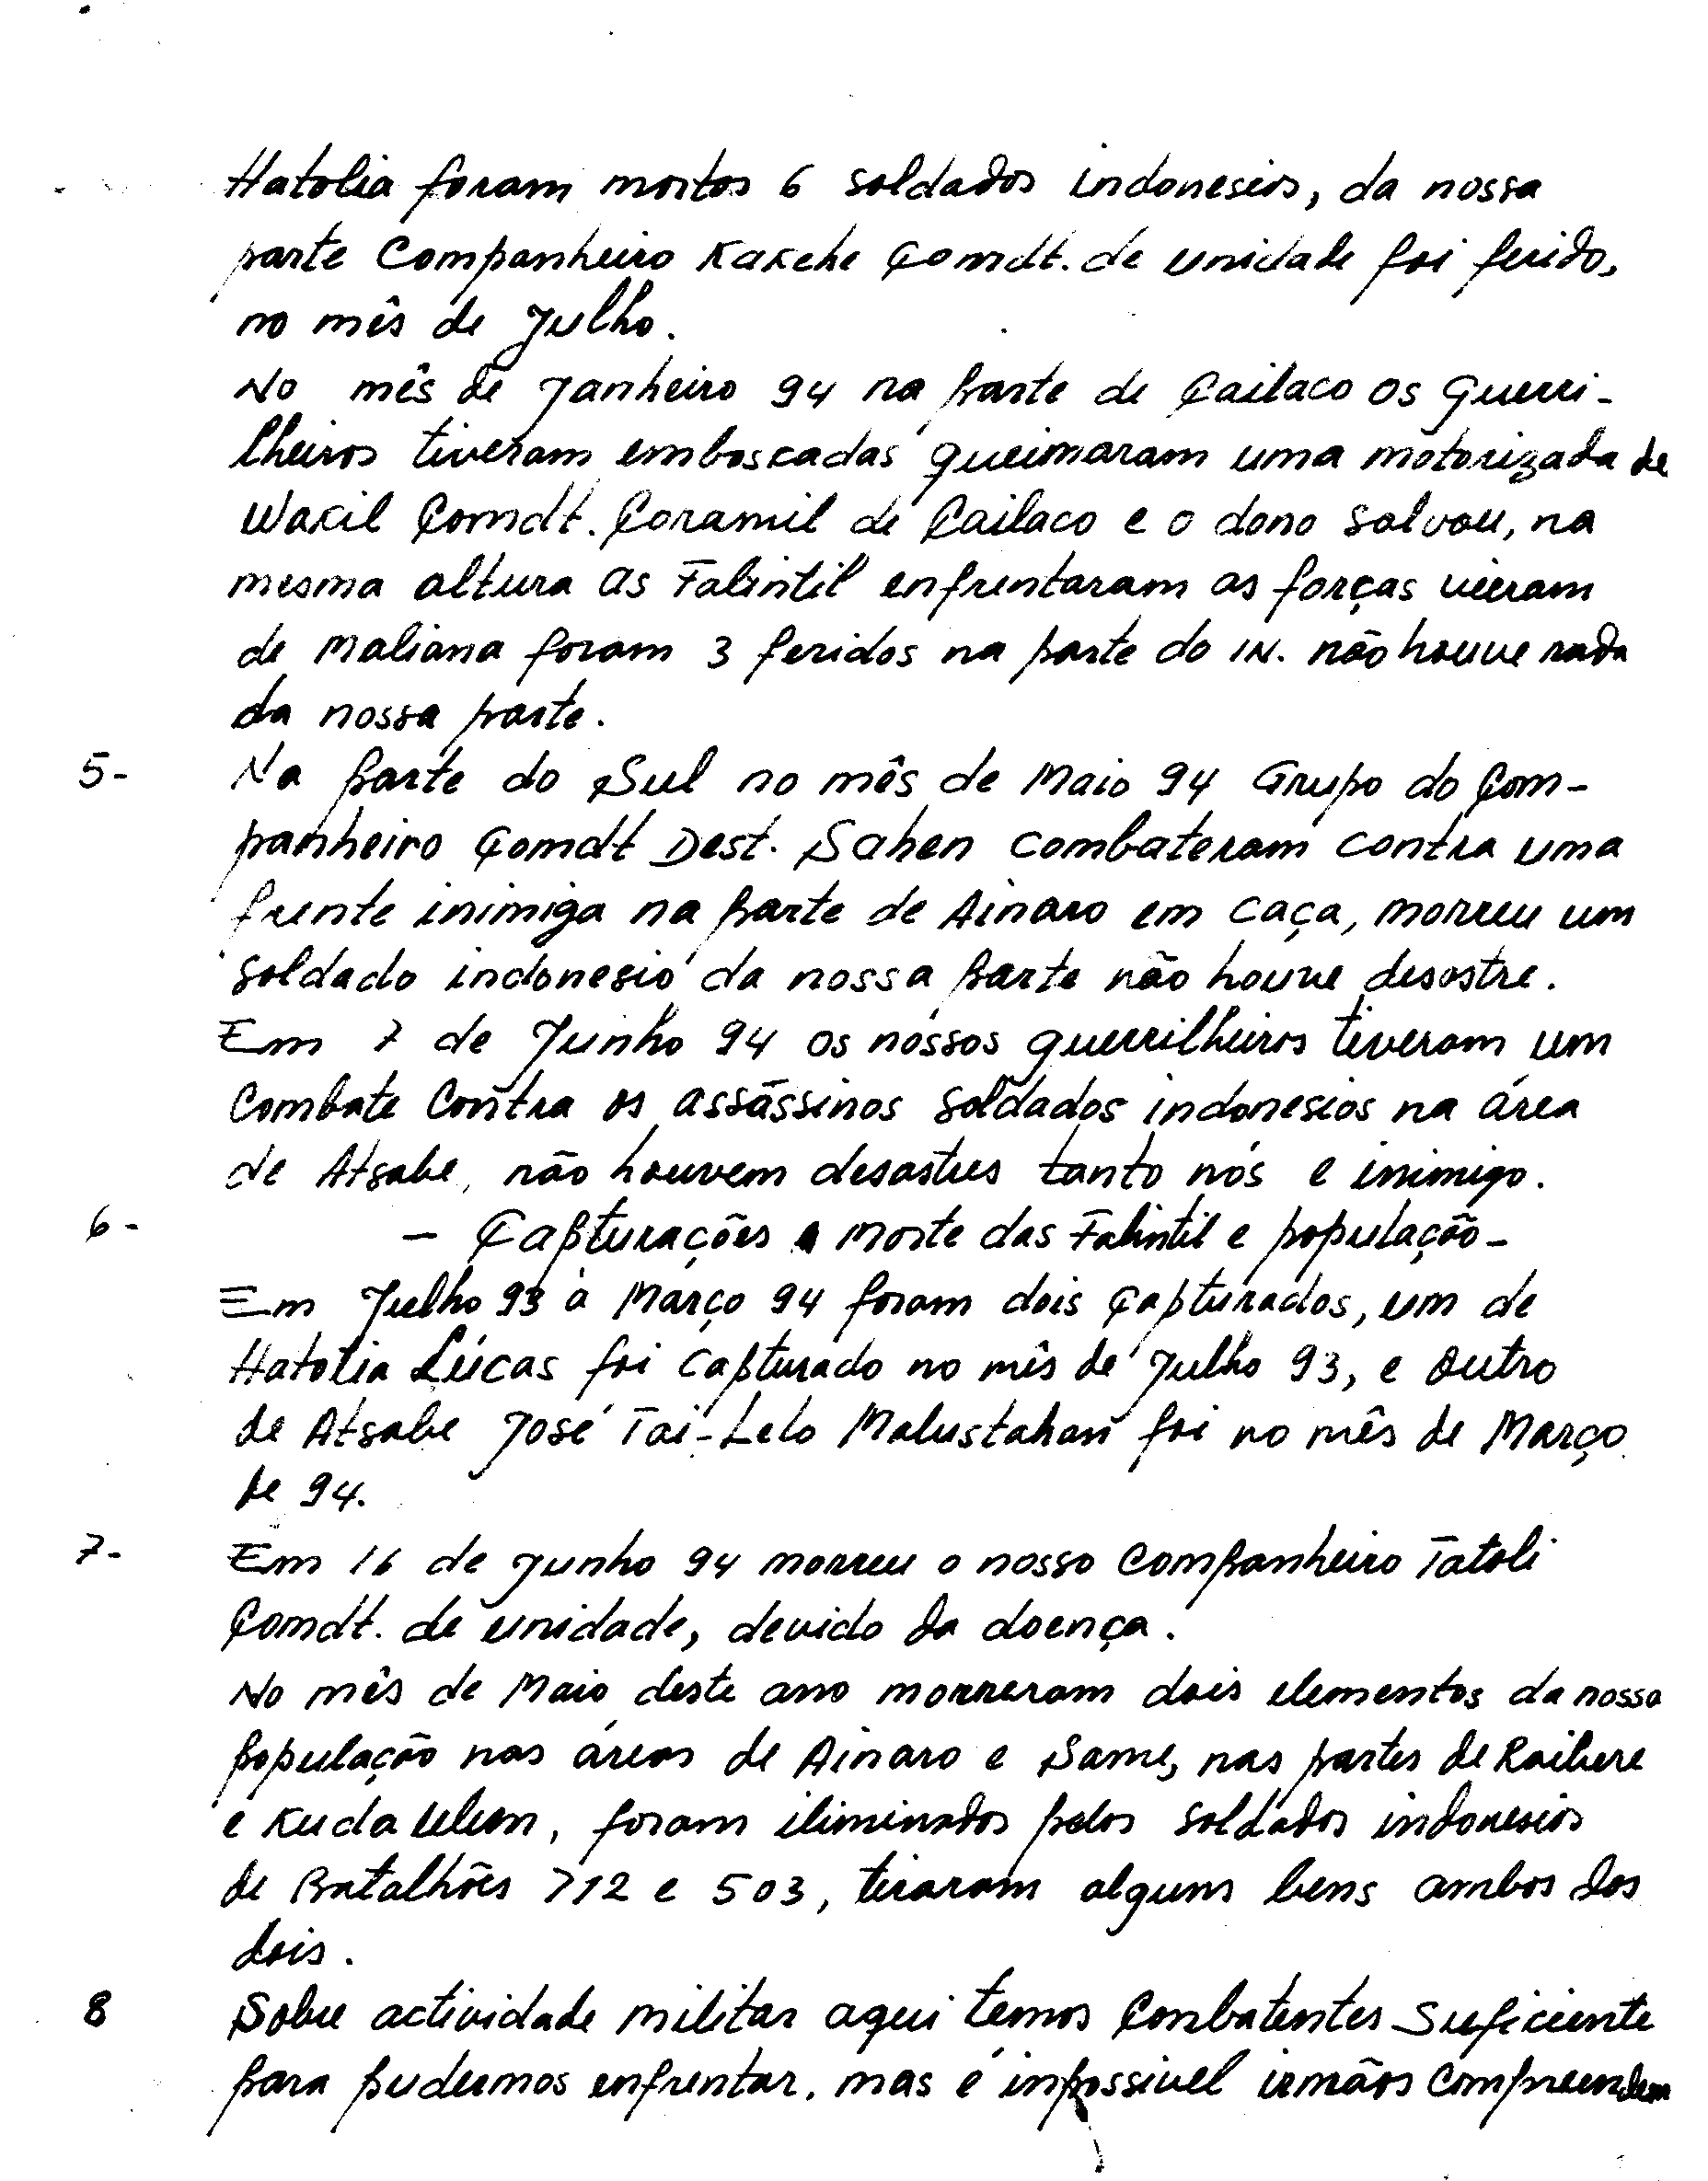 Hatolia foram mortos 6 soldados indonesios, da nossa
parte Companheiro Kakehe Comdt. de unidade foi ferido,
no mês de Julho.
No mês de Janheiro 94 na parte de Cailaco os Guerri-
lheiros tiveram emboscadas queimaram uma motorizada de
Wakil Comdt. Coramil de Cailaco e o dono salvou, na
mesma altura as Falintil enfrentaram as forças vieram
de Maliana foram 3 feridos na parte do IN. não houve nada
da nossa parte.
5- Na parte do Sul no mês de Maio 94 Grupo do Com-
panheiro Comdt Dest. Sahen combateram contra uma
frente inimiga na parte de Ainaro em caça, morreu um
soldado indonesio da nossa parte não houve desastre.
Em 7 de Junho 94 os nossos guerrilheiros tiveram um
Combate Contra os assássinos soldados indonesios na área
de Atsabe, não houvem desastres tanto nós e inimigo.
6- - Capturações e Morte das Falintil e população -
Em Julho 93 à Março 94 foram dois Capturados, um de
Hatolia Lúcas foi Capturado no mês de Julho 93, e outro
de Atsabe José Tai-Lelo Malustahan foi no mês de Março
de 94.
7- Em 16 de Junho 94 morreu o nosso Companheiro Tatoli
Comdt. de unidade, devido da doença.
No mês de Maio deste ano morreram dois elementos da nossa
população nas áreas de Ainaro e Same, nas partes de Raibere
e Kuda Ulun, foram iliminados pelos soldados indonesios
de Batalhões 712 e 503, tiraram alguns bens ambos dos
dois.
8 Sobre actividade militar aqui temos Conbatentes Suficiente
para pudermos enfrentar, mas é inpossivel irmãos Compreendem